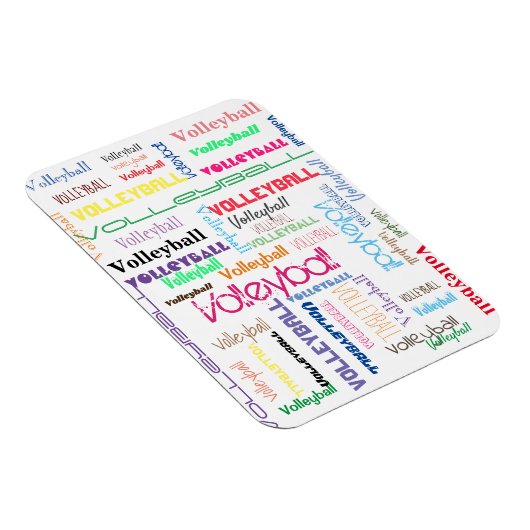 Volleyball
Volleyball
Volleyball
Volleyball
Volleyball
Volleyball
Volleyball
VOLLEYBALL
Volleyball
VOLLEYBALL
VOLLEYBALL
VOLLEYBALL
VOLLEYBALL
Volleyball
Volleyball
Volleyball
Volleyball
VOLLEYBALL
Volleyball
VOLLEYBALL
VOLLEYBALL
Volleyball
Volleyball
Volleyball
VOLLEYBALL
Volleyball
Volleyball
Volleyball
VOLLEYBALL
Volleyball
Volleyball
Volleyball
VOLLEYBALL
VOLLEYBALL
Volleyball
VOLLEYBALL
Volleyball
Volleyball
Volleyball
VOLLEYBALL
VOLLEYBALL
VOLLEYBALL
Volleyball
Volleyball
VOLLEYBALL
VOLLEYBALL
VOLLEYBALL
Volleyball
VOLLEYBALL
Volleyball